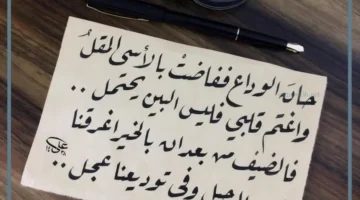 حان الوداع ففاضت بالأسى المقلُ
واغتم قلبي فليس البين يحتمل ..
فالضيف من بعد ان بالخير اغرقنا
وفي توديعنا عجل ..